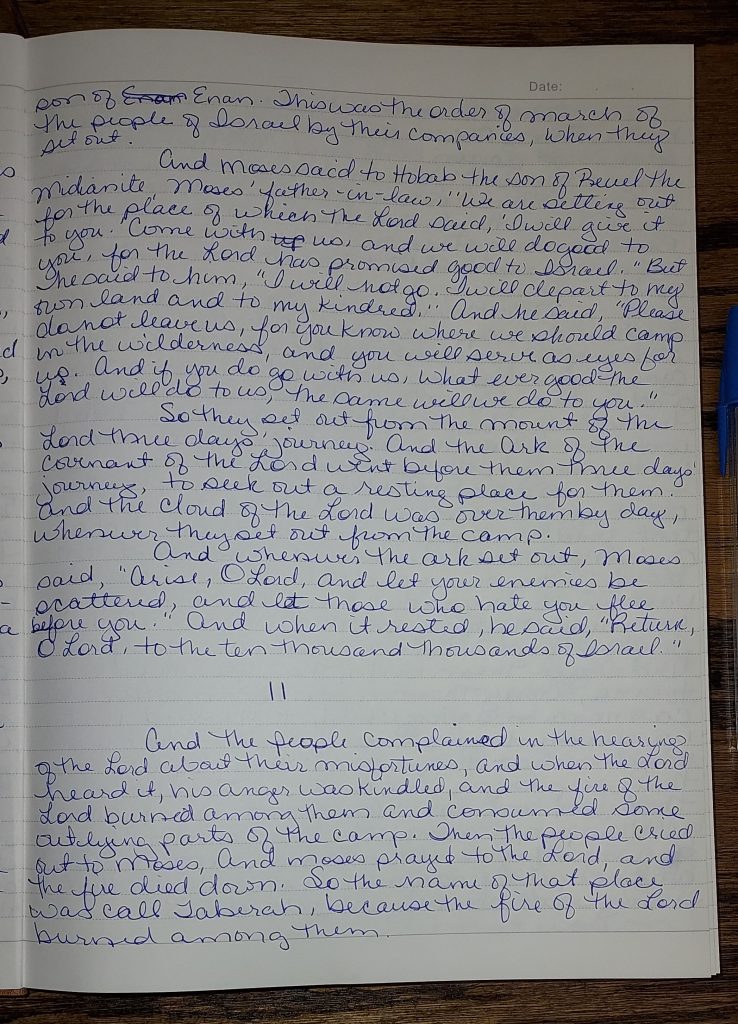 Date:
son of Enam Enan. This was the order of march of
the people of Israel by their companies, when they
set out.
And Moses said to Hobab the son of Reuel the
Midianite, Moses' father-in-law, "We are setting out
for the place of which the Lord said, 'I will give it
to you. Come with up us, and we will do good to
you, for the Lord has promised good to Israel." But
he said to him, "I will not go. I will depart to my
own land and to my kindred." And he said, "Please
do not leave us, for you know where we should camp
in the wilderness, and you will serve as eyes for
us. And if you do go with us, what ever good the
Lord will do to us, the same will we do to you."
So they set out from the mount of the
Lord three days' journey. And the Ark of the
covenant of the Lord went before them three days'
journey, to seek out a resting place for them.
And the cloud of the Lord was over them by day,
whenever they set out from the camp.
And whenever the ark set out, Moses
said, "Arise, O Lord, and let your enemies be
scattered, and let those who hate you flee
before you." And when it rested, he said, "Return,
O Lord, to the ten thousand thousands of Israel."
11
And the people complained in the hearing
of the Lord about their misfortunes, and when the Lord
heard it, his anger was kindled, and the fire of the
Lord burned among them and consumed some
outlying parts of the camp. Then the people cried
out to Moses, And Moses prayed to the Lord, and
the fire died down. So the name of that place
was call Taberah, because the fire of the Lord
burned among them.